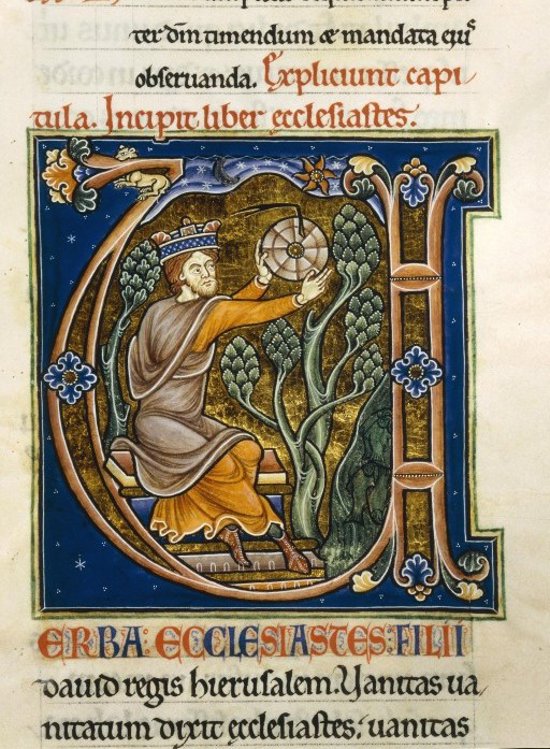 ter dñm timendum & mandata ei9
obseruanda. Expliciunt capi
tula. Incipit liber ecclesiastes.
V
ERBA: ECCLESIASTES: FILII
dauid regis hierusalem. Vanitas ua
nitatum dixit ecclesiastes; uanitas